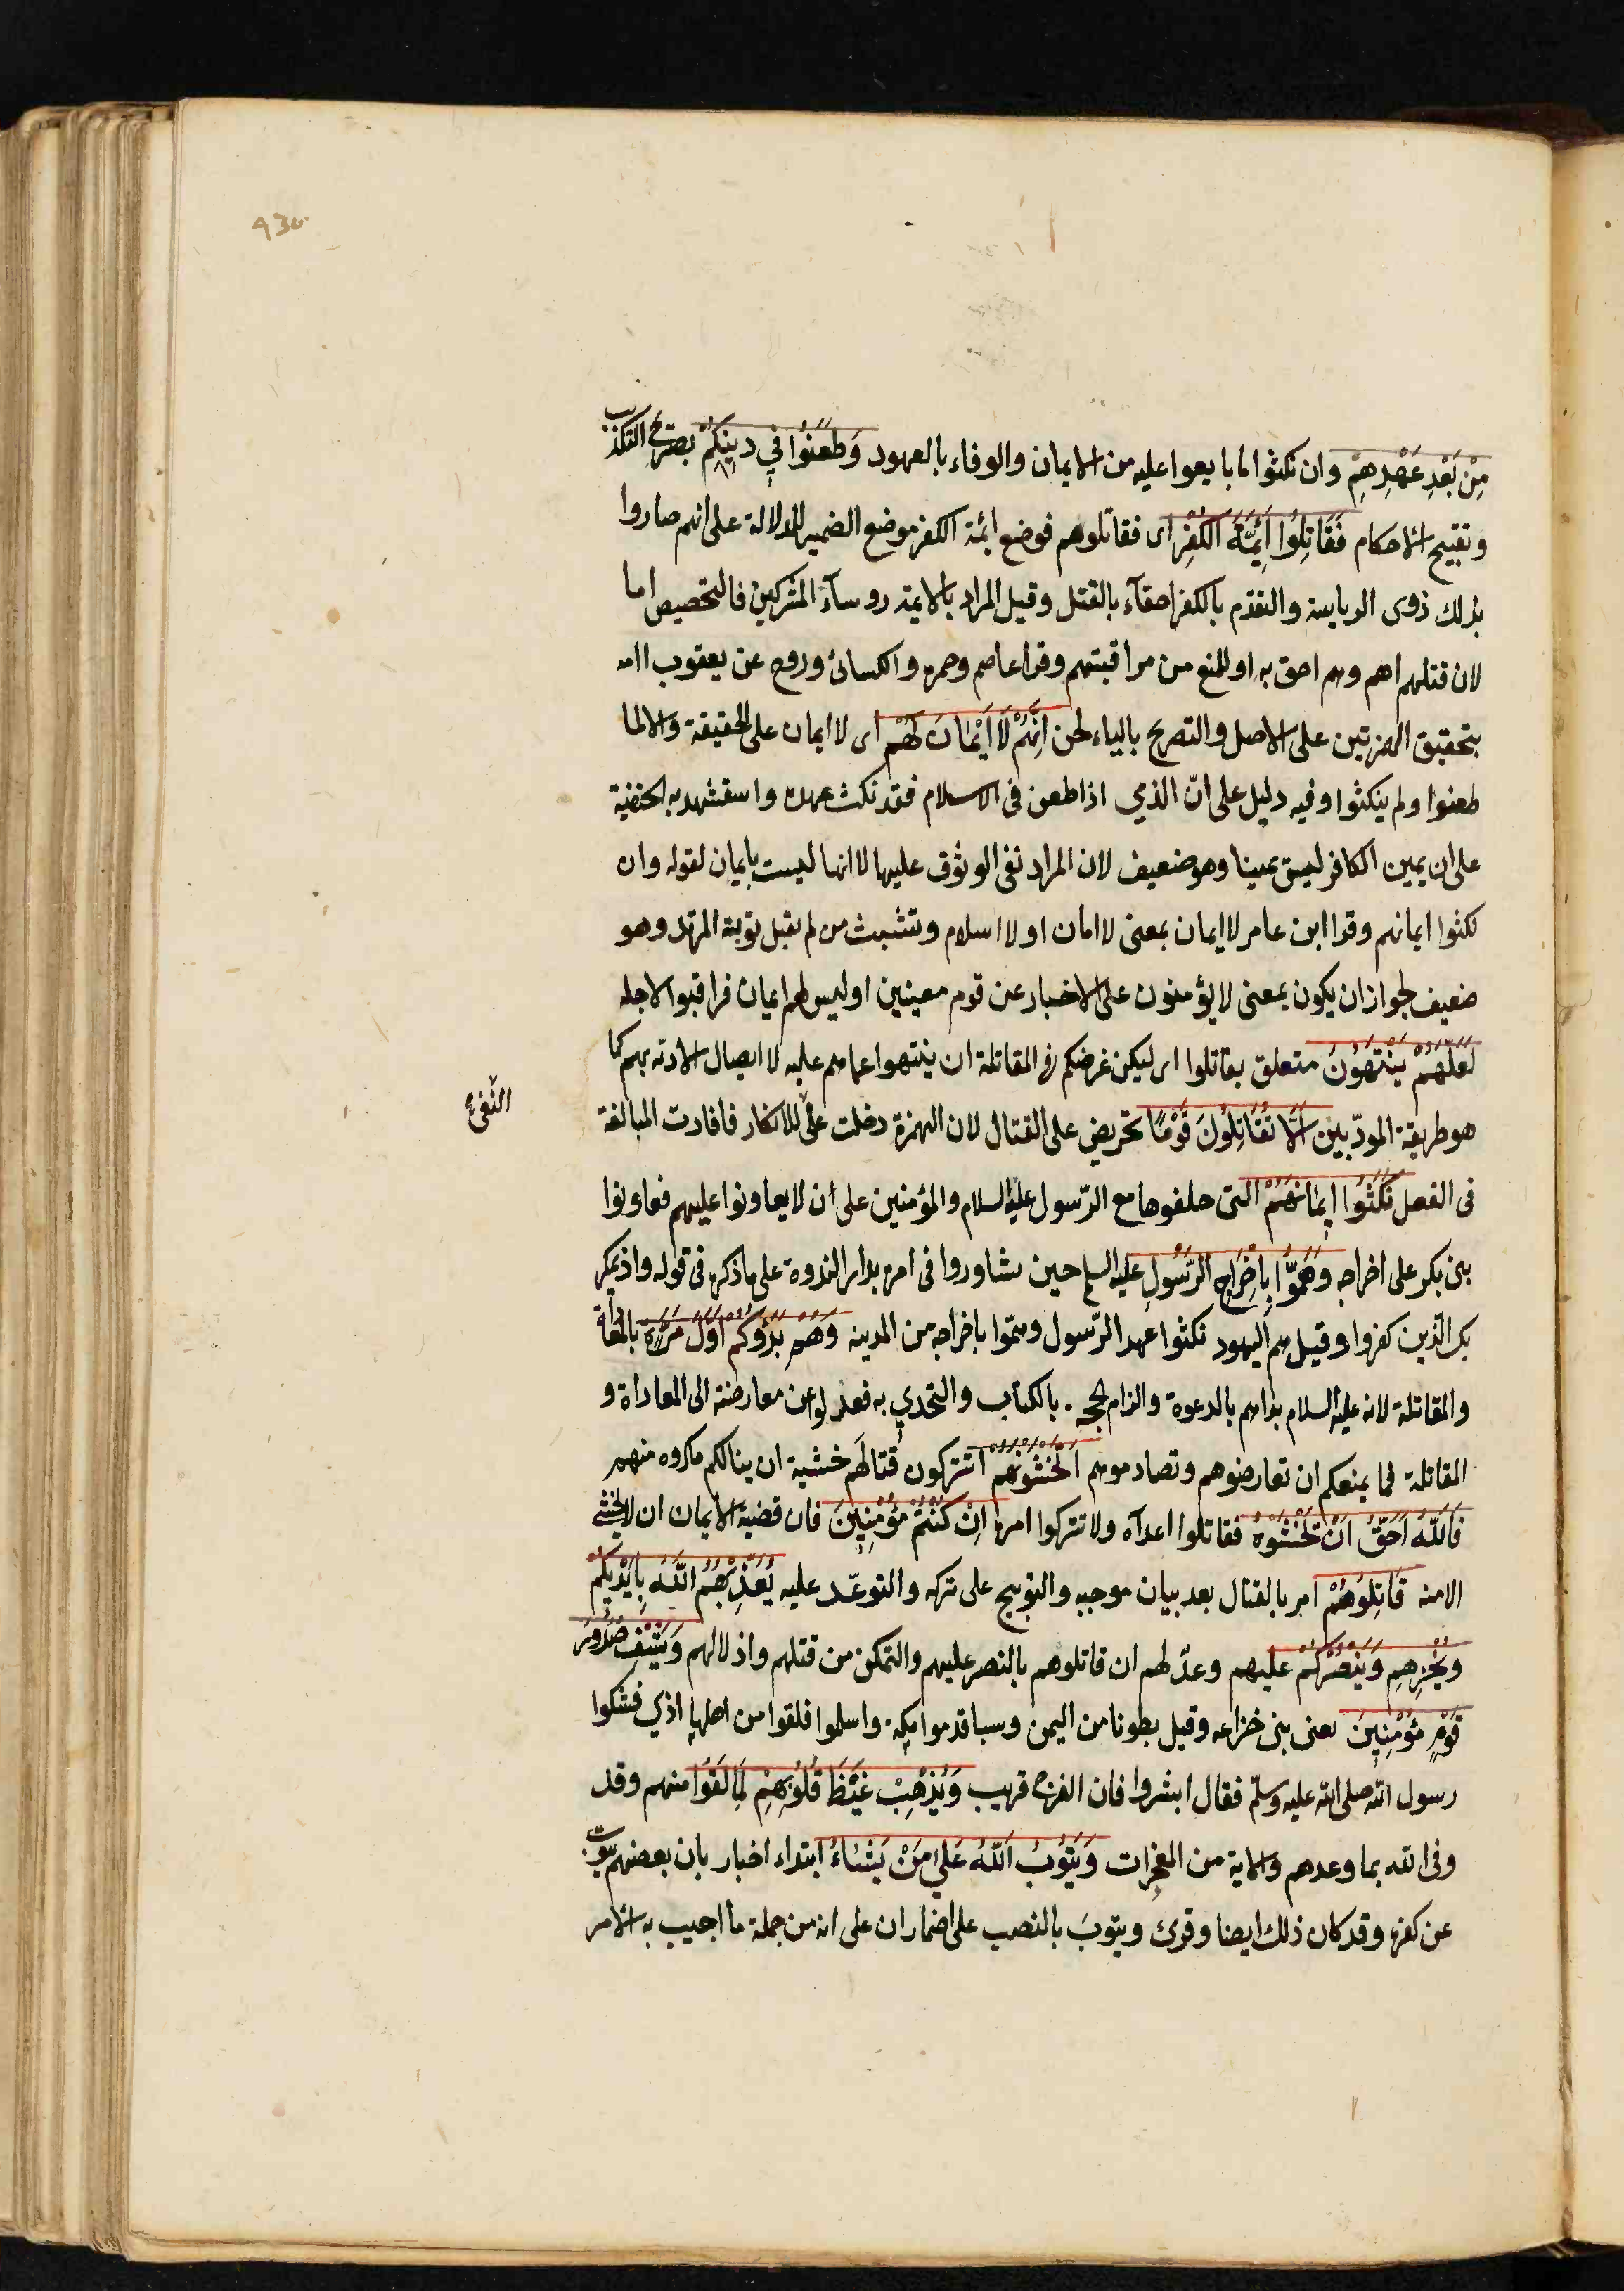 مِنْ بَعْدِ عَهْدِهِمْ وان نكثوا ما بايعوا عليه من الايمان والوفاء بالعهود وَطَعَنُوا فِي دِينِكُمْ بصريح التكذيب
وتقبيح الاحكام فَقَاتِلُوا اَئِمَّةَ الْكُفْرِ اى فقاتلوهم فوضع ائمة الكفر موضع الضمير للدلالة على انهم صاروا
بذلك ذوى الرياسة والتقدم بالكفر احقآء بالقتل وقيل المراد بالايمة روسآء المشركين فالتخصيص اما
لان قتلهم اهم وهم احق به او للمنع من مراقبتهم وقرا عاصم وحمزه والكسائى وروح عن يعقوب اامه
بتحقيق الهمزتين على الاصل والتصريح بالياء لحن اِنَّهُمْ لَا اَيْمَانَ لَهُمْ اى لا ايمان على الحقيقة والا لما
طعنوا ولم ينكثوا وفيه دليل على انّ الذمي اذا طعن فى الاسلام فقد نكث عهده واستشهد به الحنفية
على ان يمين الكافر ليس يمينا وهو ضعيف لان المراد نفى الوثوق عليها لا انها ليست بايمان لقوله وان
نكثوا ايمانهم وقرا ابن عامر لا ايمان بمعنى لا امان او لا اسلام وتشبث من لم يقبل توبة المرتد وهو
ضعيف لجواز ان يكون بمعنى لا يؤمنون على الاخبار عن قوم معينين او ليس لهم ايمان فراقبوا لاجله
لَعَلَّهُمْ يَنْتَهُونَ متعلق بقاتلوا اى ليكن غرضكم فى المقاتلة ان ينتهوا عما هم عليه لا ايصال الاذية بهم كما
هو طريقة المودّبين اَلَا تُقَاتِلُونَ قَوْمًا تحريض على القتال لان الهمزة دخلت على للانكار فافادت المبالغة
النفى
فى الفعل نَكَثُوا اَيْمَانَهُمْ التى حلفوها مع الرّسول عليه السلام والمؤمنين على ان لا يعاونوا عليهم فعاونوا
بنى بكر على اخراجه وَهَمُّوا بِاِخْرَاجِ الرَّسُولِ عليه السلم حين شاوروا فى امره بدار الندوة على ما ذكره فى قوله واذ يمكر
بك الّذين كفروا وقيل هم اليهود نكثوا عهد الرّسول وهمّوا باخراجه من المدينه وَهُمْ بَدَؤُكُمْ اَوَّلَ مَرَّةٍ بالمعاداة
والمقاتلة لانه عليه السلام بداهم بالدعوة والزام الحجه بالكتاب والتحدي به فعدلوا عن معارضته الى المعاداة و
المقاتلة فما يمنعكم ان تعارضوهم وتصادموهم اَتَخْشَوْنَهُمْ اتتركون قتالهم خشية ان ينالكم مكروه منهم
فَاللّٰهُ اَحَقُّ اَنْ تَخْشَوْهُ فقاتلوا اعدآه ولا تتركوا امره اِنْ كُنْتُمْ مُؤْمِنِينَ فان قضية الايمان ان لا يخشى
الا منه قَاتِلُوهُمْ امر بالقتال بعد بيان موجبه والتوبيخ على تركه والتوعّد عليه يُعَذِّبْهُمُ اللّٰهُ بِاَيْدِيكُمْ
وَيُخْزِهِمْ وَيَنْصُرْكُمْ عَلَيْهِمْ وعدّ لهم ان قاتلوهم بالنصر عليهم والتمكن من قتلهم واذلالهم وَيَشْفِ صُدُورَ
قَوْمٍ مُؤْمِنِينَ يعنى بنى خزاعه وقيل بطونا من اليمن وسبا قدموا مكة واسلموا فلقوا من اهلها اذي فشكوا
رسول اللّٰه صلى اللّٰه عليه وسلّم فقال ابشروا فان الفرج قريب وَيُذْهِبْ غَيْظَ قُلُوبِهِمْ لِمَا لَقَوْا منهم وقد
وفى اللّٰه بما وعدهم والاية من المعجزات وَيَتُوبُ اللّٰهُ عَلَى مَنْ يَشَاءُ ابتداء اخبار بان بعضهم يتوب
عن كفره وقد كان ذلك ايضا وقرئ ويتوبَ بالنصب على اضمار ان على انه من جملة ما اجيب به الامر